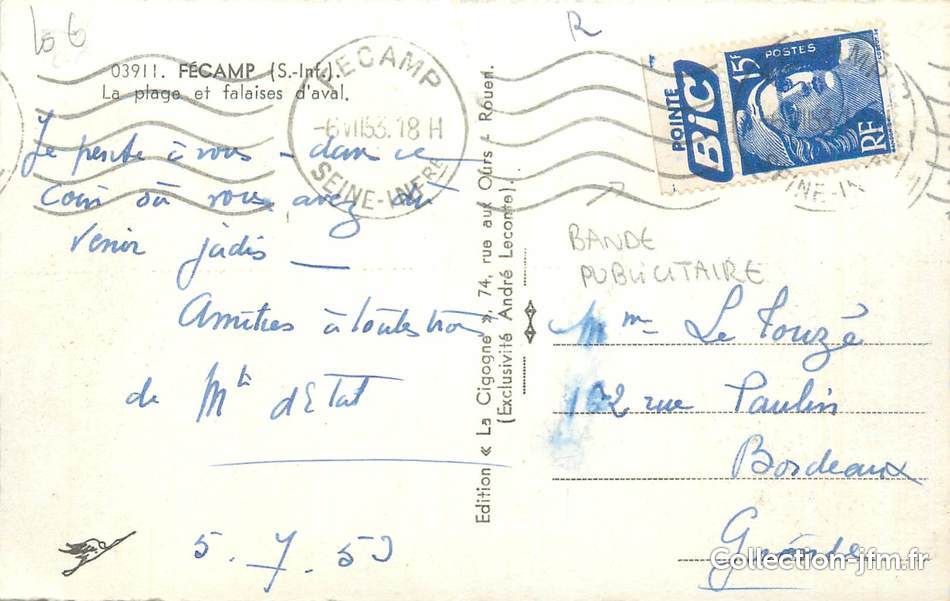 R
03911. FÉCAMP (S.-Inf.).
La plage et falaises d'aval.
FÉCAMP
-6 VII 53. 18 H
SEINE-INFRE
POINTE
BiC
15F
POSTES
RF
Je pense à vous – dans ce
Coin où vous avez dû
venir jadis —
Amitiés à toutes trois
de Mth d'Etat
5.7.53
Edition « La Cigogne », 74, rue aux Ours - Rouen.
(Exclusivité André Leconte).
BANDE
PUBLICITAIRE
Mme Le Touzé
102 rue Paulin
Bordeaux
Gironde
Collection-jfm.fr